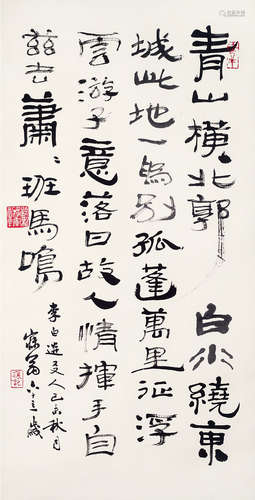 青山横北郭 白水繞東
城此地一為别孤蓬萬里征浮
雲游子意落日故人情揮手自
茲去蕭〻班馬鳴
李白送友人 秋月
六十三歲